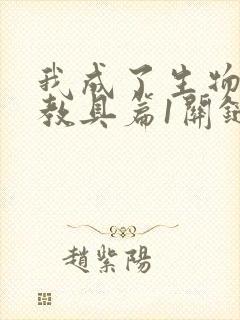 我成了生物
教具篇1關鍵
趙紫陽